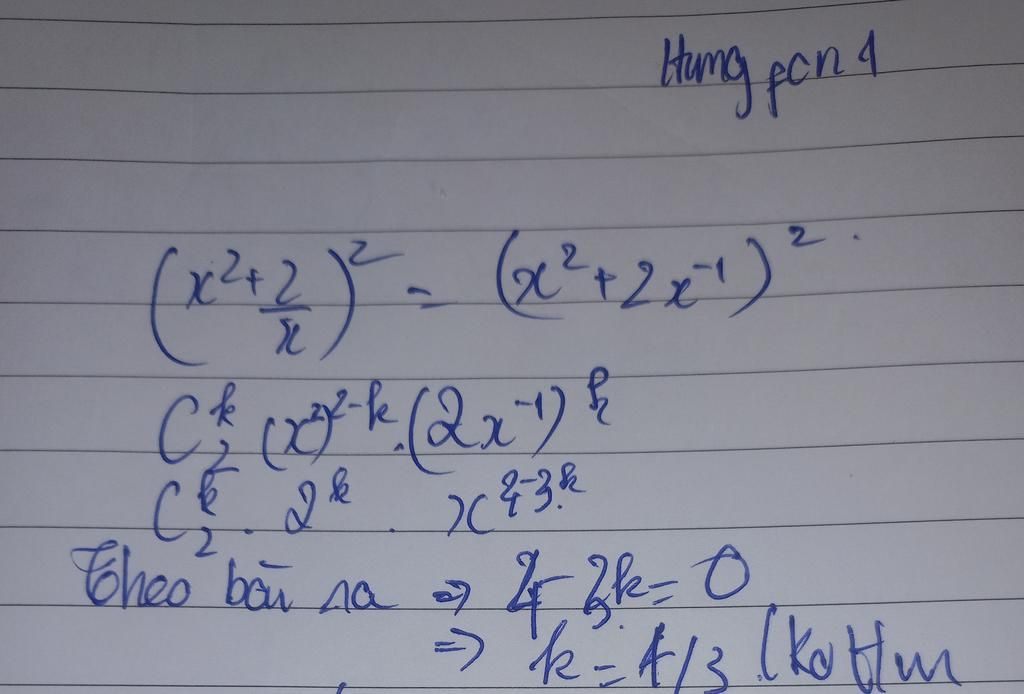 Hưng pcn 1
(x² + 2/x)² = (x² + 2x⁻¹)².
C₂ᵏ (x²)²⁻ᵏ . (2x⁻¹)ᵏ
C₂ᵏ . 2ᵏ . x⁴⁻³ᵏ
Theo bài ra ⇒ 4 - 3k = 0
⇒ k = 4/3 (Ko